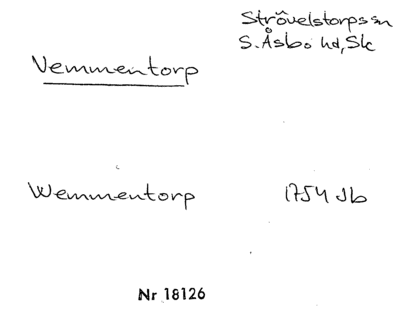 Strövelstorps sn
S. Åsbo hd, Sk
Vemmentorp
Wemmentorp 1754 Jb
Nr 18126